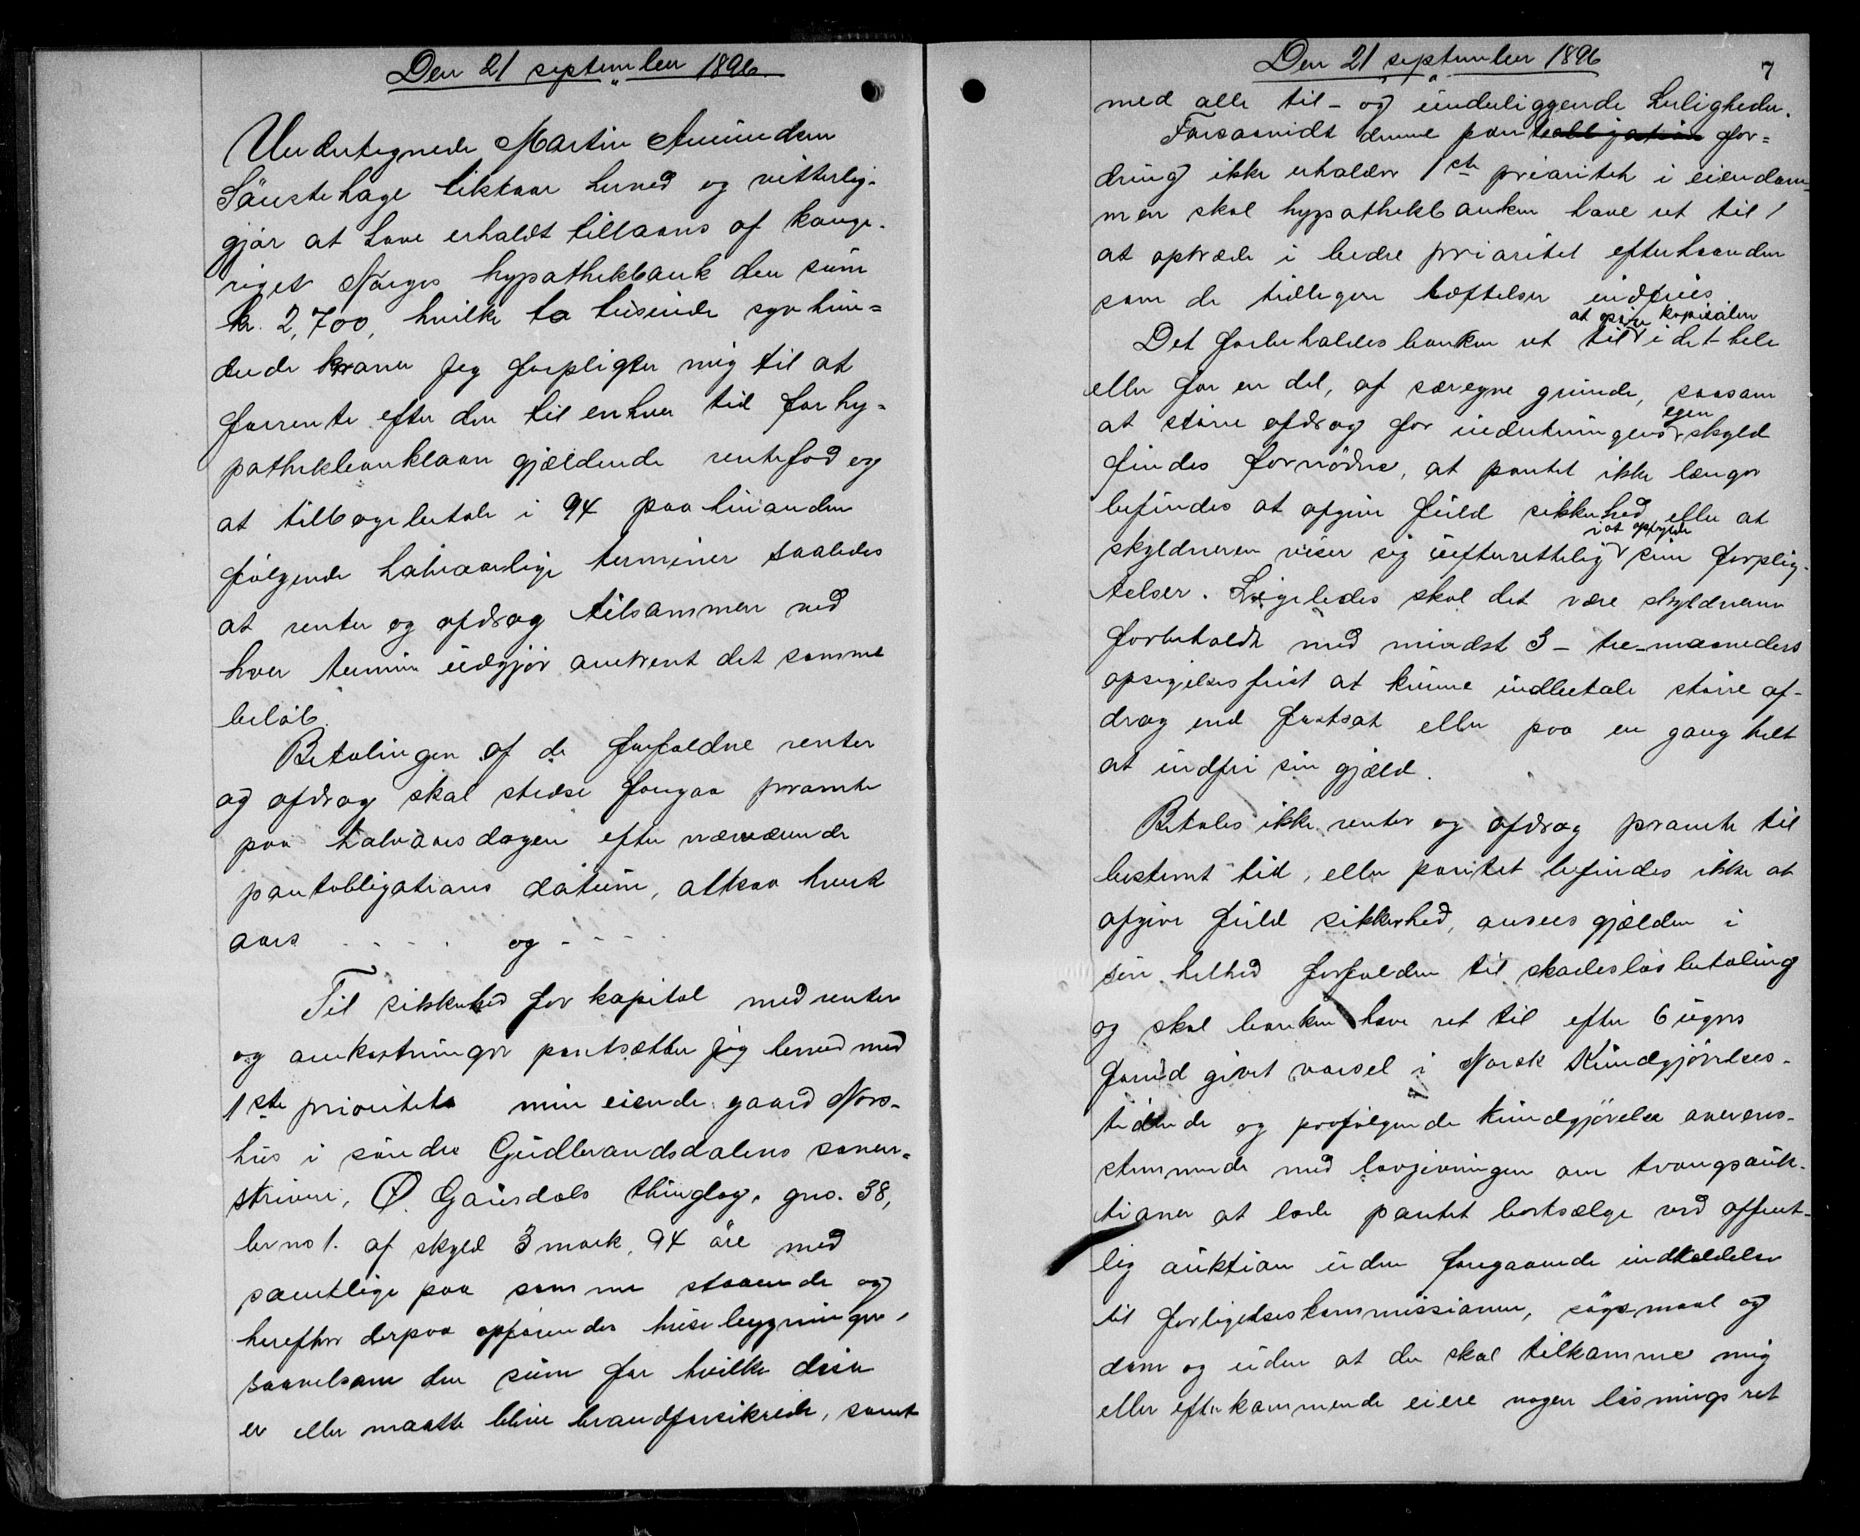 Den 21 september 1896.
Undertegnede Martin Amundsen
Sönstehage tilstaar herved og vitterlig-
gjør at have erholdt tillaans af konge-
riget Norges hypothekbank den sum
kr. 2,700, hvilke to tusinde syv hun-
drede kroner jeg forpligter mig til at
forrente efter den til enhver tid for hy-
pothekbanklaan gjældende rentefod og
at tilbagebetale i 94 paa hinanden
følgende halvaarlige terminer saaledes
at renter og afdrag tilsammen ved
hver termin udgjør omtrent det samme
beløb.
Betalingen af de forfaldne renter
og afdrag skal stedse foregaa promte
paa halvaarsdagen efter nærværende
pantobligations datum, altsaa hvert
aars . . . . og - - - -
Til sikkerhed for kapital med renter
og omkostninger pantsætter jeg herved med
1ste prioritets min eiende gaard Nors-
hus i søndre Gudbrandsdalens soren-
skriveri, Ø. Gausdals thinglag, gno. 38,
brno 1. af skyld 3 mark, 94 øre med
samtlige paa samme staaende og
herefter derpaa opførendes husebygninger,
saavelsom den sum for hvilke disse
er eller maatte blive brandforsikrede, samt
Den 21 september 1896
7
med alle til- og underliggende herligheder.
Forsaavidt denne panteobligation for-
dring ikke erholder 1ste prioritet i eiendom-
men skal hypothekbanken have ret til
at optræde i bedre prioritet efterhaanden
som de tidligere hæftelser indfries.
at opsige kapitalen
Det forbeholdes banken ret til i det hele
eller for en del, af særegne grunde, saasom
egen
at større afdrag for indretningens skyld
findes fornødne, at pantet ikke længer
befindes at afgive fuld sikkerhed eller at
i at opfylde
skyldneren viser sig uefterrettelig sine forplig-
telser. Ligeledes skal det være skyldneren
forbeholdt med mindst 3 - tre - maaneders
opsigelsesfrist at kunne indbetale større af-
drag end fastsat eller paa en gang helt
at indfri sin gjæld.
Betales ikke renter og afdrag promte til
bestemt tid, eller pantet befindes ikke at
afgive fuld sikkerhed, ansees gjælden i
sin helhed forfalden til skadesløs betaling
og skal banken have ret til efter 6 ugers
forud givet varsel i Norsk Kundgjørelses-
tidende og paafølgende kundgjørelse overens-
stemmende med lovgivningen om tvangsauk-
tioner at lade pantet bortsælge ved offent-
lig auktion uden foregaaende indkaldelse
til forligelseskommissionen, søgsmaal og
dom og uden at der skal tilkomme mig
eller efterkommende eiere nogen løsningsret